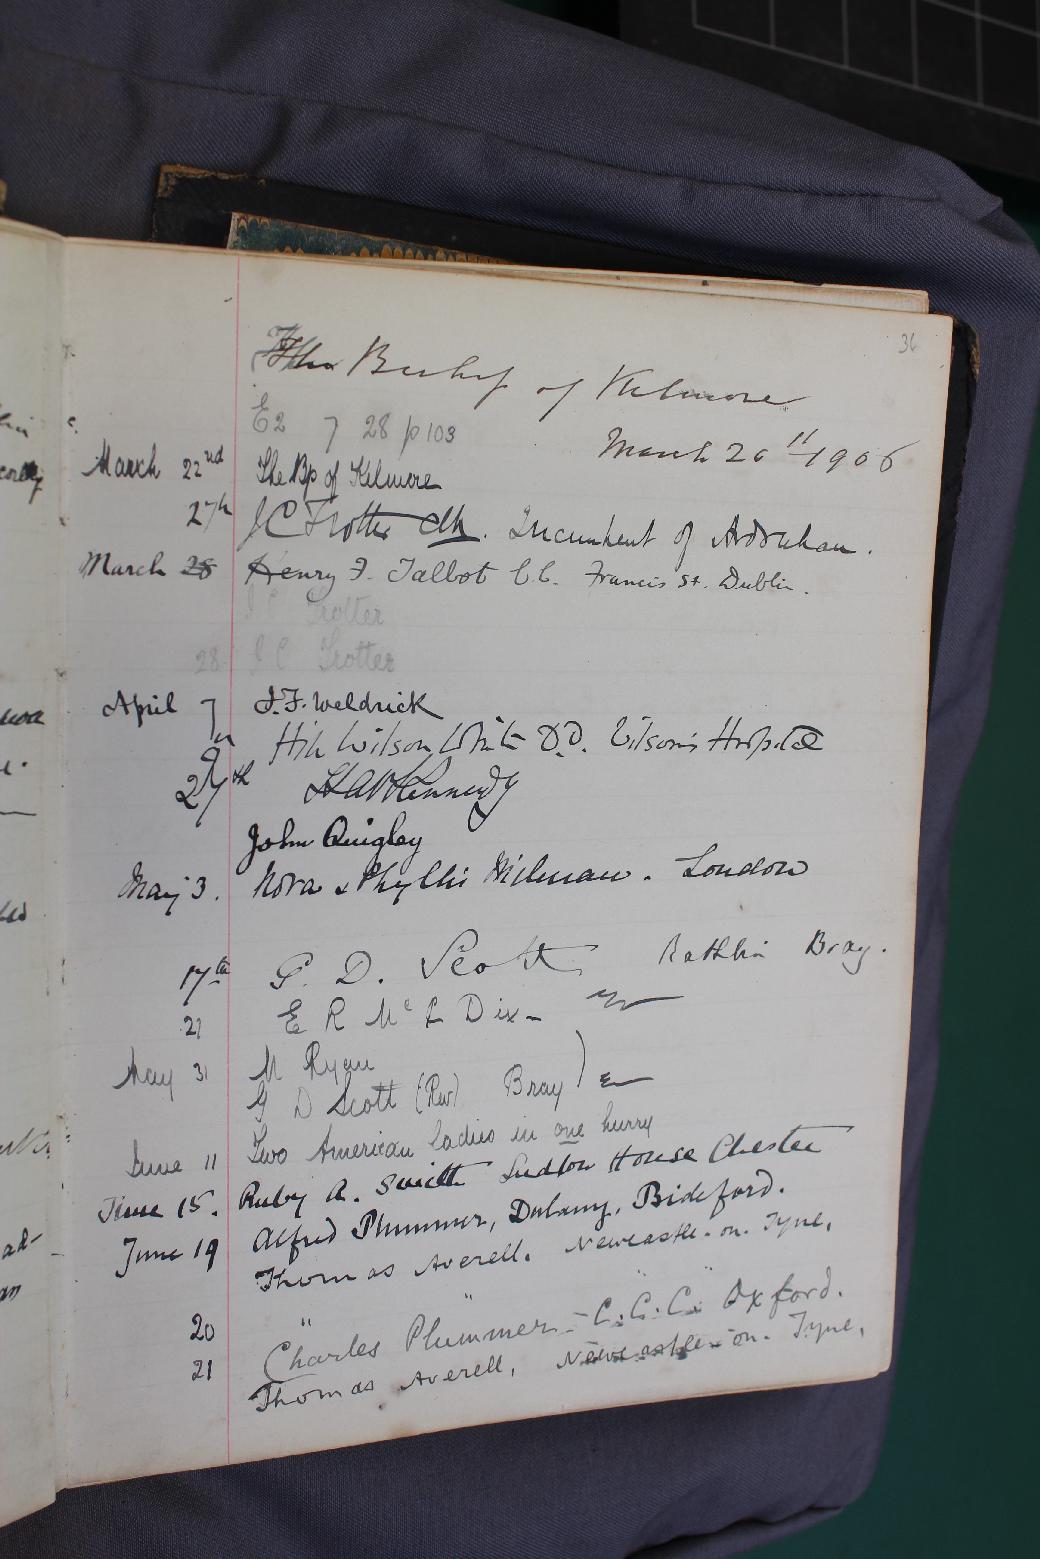 36
The Bishop of Kilmore
E2 7 28 p 103
March 20th 1906
March 22nd The Bp of Kilmore
27th J C Trotter Clk. Incumbent of Ardrahan.
March 28 Henry F. Talbot C.C. Francis St. Dublin.
J C Trotter
28 J C Trotter
April 7 J. F. Weldrick
9th Hill Wilson White D.D. Wilson's Hospital
27th Kennedy
John Quigley
May 3. Nora & Phyllis Milman. London
17th G. D. Scott Rathlin Bray.
21 E R McC Dix
May 31 M Ryan
G D Scott (Rev) Bray
June 11 Two American ladies in one hurry
June 15. Ruby A. Smith House Chester
June 19 Alfred Plummer, Bideford.
Thomas Averell. Newcastle-on-Tyne.
20 " " " "
21 Charles Plummer - C.C.C. Oxford.
Thomas Averell, Newcastle-on-Tyne,